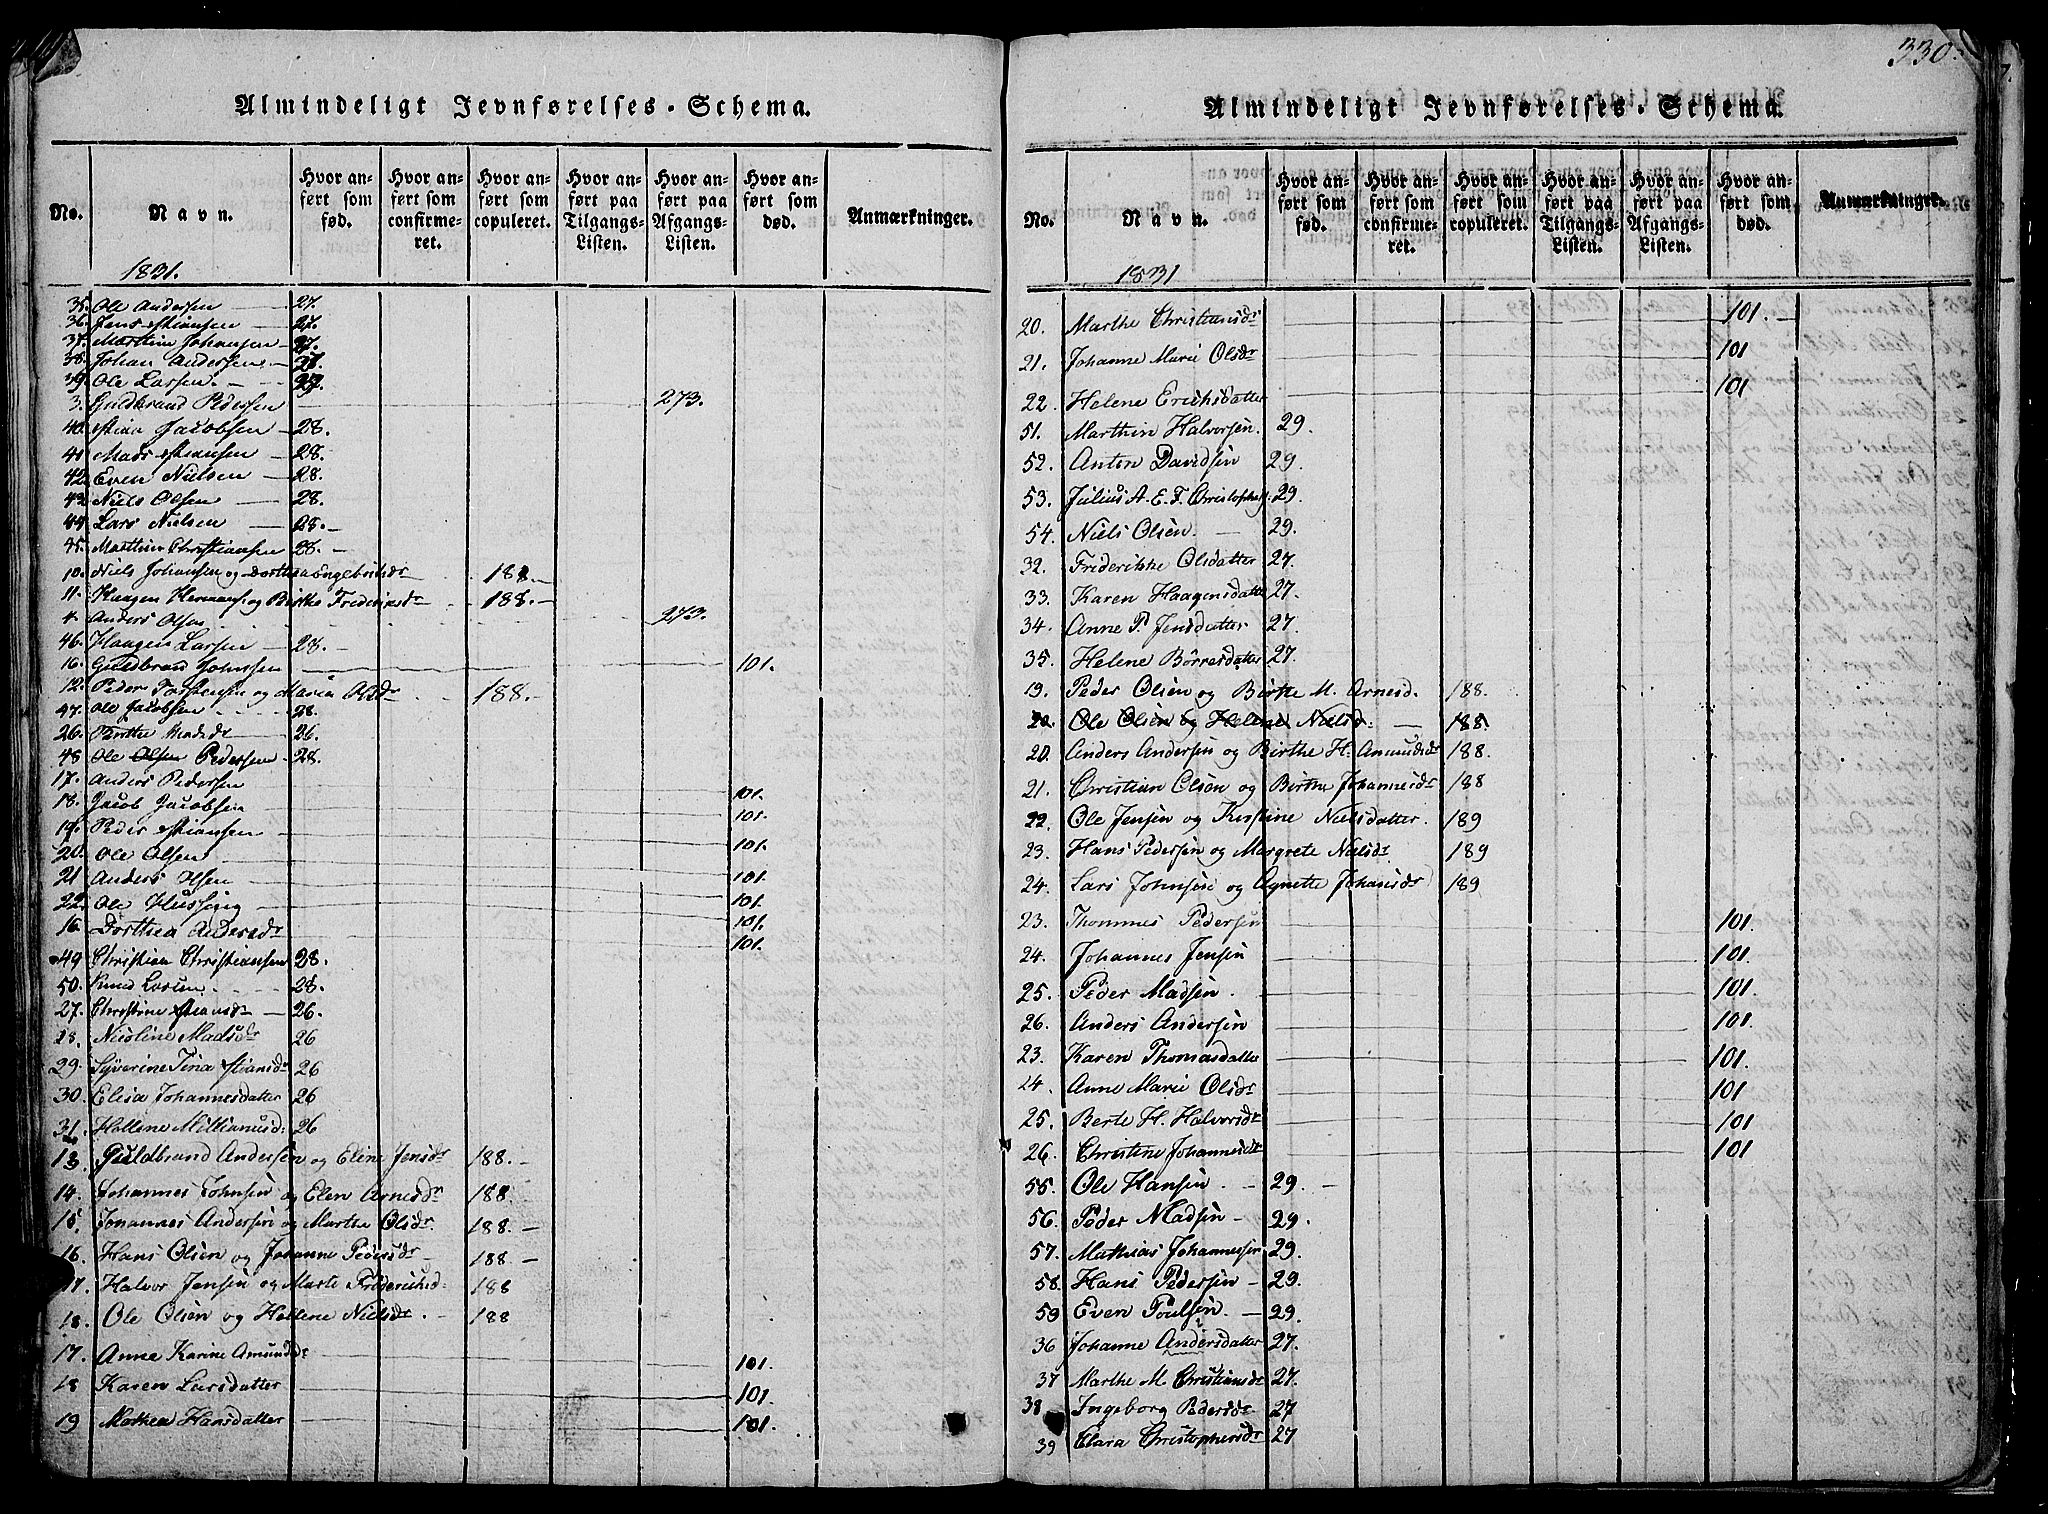 330.
Almindeligt Jevnførelses-Schema.
No. Navn. Hvor anført som fød. Hvor anført som confirmeret. Hvor anført som copuleret. Hvor anført paa Tilgangs-Listen. Hvor anført paa Afgangs-Listen. Hvor anført som død. Anmærkninger.
1831.
35. Ole Andersen 27.
36. Jens Stiansen 27.
37. Marthin Johansen 27.
38. Johan Andersen 27.
39. Ole Larsen. 27.
3. Guldbrand Pedersen 273.
40. Stian Jacobsen 28.
41. Mads Stiansen 28.
42. Even Nielsen 28.
43. Niels Olsen 28.
44. Lars Nielsen 28.
45. Marthin Christiansen 28.
10. Niels Johansen og Dorthea Engebritsdr 188.
11. Haagen Hermans. og Birthe Fredriksdr 188.
4. Anders Olsen 273.
46. Haagen Larsen 28.
16. Guldbran Johnsen 101.
12. Peder Torstensen og Maria Olsdr 188.
47. Ole Jacobsen 28.
26. Berthe Madsdr 26.
48. Ole Olsen Pedersen 28.
17. Anders Pedersen 101.
18. Jacob Jacobsen 101.
19. Peder Stiansen 101.
20. Ole Olsen 101.
21. Anders Olsen 101.
22. Ole 101.
16. Dorthea Andersdr 101.
49 Christian Christiansen 28.
50. Knud Larsen. 28.
27. Christine Stiansdr 26.
28. Nicoline Madsdr 26
29. Syverine Tina Stiansdr 26
30. Elisa Johannesdatter 26
31. Hellene Millianusd: 26
13. Guldbrand Andersen og Eline Jensdr 188.
14. Johannes Johnsen og Elen Arnesdr 188
15. Johannes Andersen og Marthe Olsdr 188.
16 Hans Olsen og Johanne Pedersdr 188
17. Halvor Jensen og Marte Friderichsd: 188
18. Ole Olsen og Hellene Nielsdr. 188
17. Anne Karine Amundsdr 101.
18 Karen Larsdatter 101
19 Mathea Hansdatter 101.
Almindeligt Jevnførelses-Schema.
No. Navn. Hvor anført som fød. Hvor anført som confirmeret. Hvor anført som copuleret. Hvor anført paa Tilgangs-Listen. Hvor anført paa Afgangs-Listen. Hvor anført som død. Anmærkninger.
1831
20. Marthe Christiansdr 101.
21. Johanne Marie Olsdr 101
22. Helene Erichsdatter 101
51. Marthin Halvorsen. 29.
52. Anton Davidsen 29.
53. Julius A. E. F. Christophers. 29.
54. Niels Olsen. 29.
32. Friderikke Olsdatter 27.
33. Karen Haagensdatter 27.
34. Anne P. Jensdatter 27.
35. Helene Börresdatter 27.
19. Peder Olsen og Birthe M. Arnesd. 188.
20. Ole Olsen og Helene Nielsd: 188.
20. Anders Andersen og Birthe H. Amundsdr 188.
21. Christian Olsen og Birthe Johannesdr 188
22. Ole Jensen og Kirstine Nielsdatter. 189
23. Hans Pedersen og Margrete Nielsdr. 189
24. Lars Johnsen og Agnette Johansdr 189
23. Thommes Pedersen 101.
24. Johannes Jensen 101
25. Peder Madsen. 101
26. Anders Andersen 101
23. Karen Thomasdatter 101
24. Anne Marie Olsdr 101
25. Berte H. Halvorsdr 101
26. Christine Johannesdr 101
55. Ole Hansen. 29.
56. Peder Madsen 29.
57. Mathias Johannessen 29.
58. Hans Pedersen 29.
59 Even Poulsen 29.
36 Johanne Andersdatter 27.
37 Marthe M. Christiansdr 27.
38 Ingeborg Pedersdr 27
39 Clara Christophersdr 27